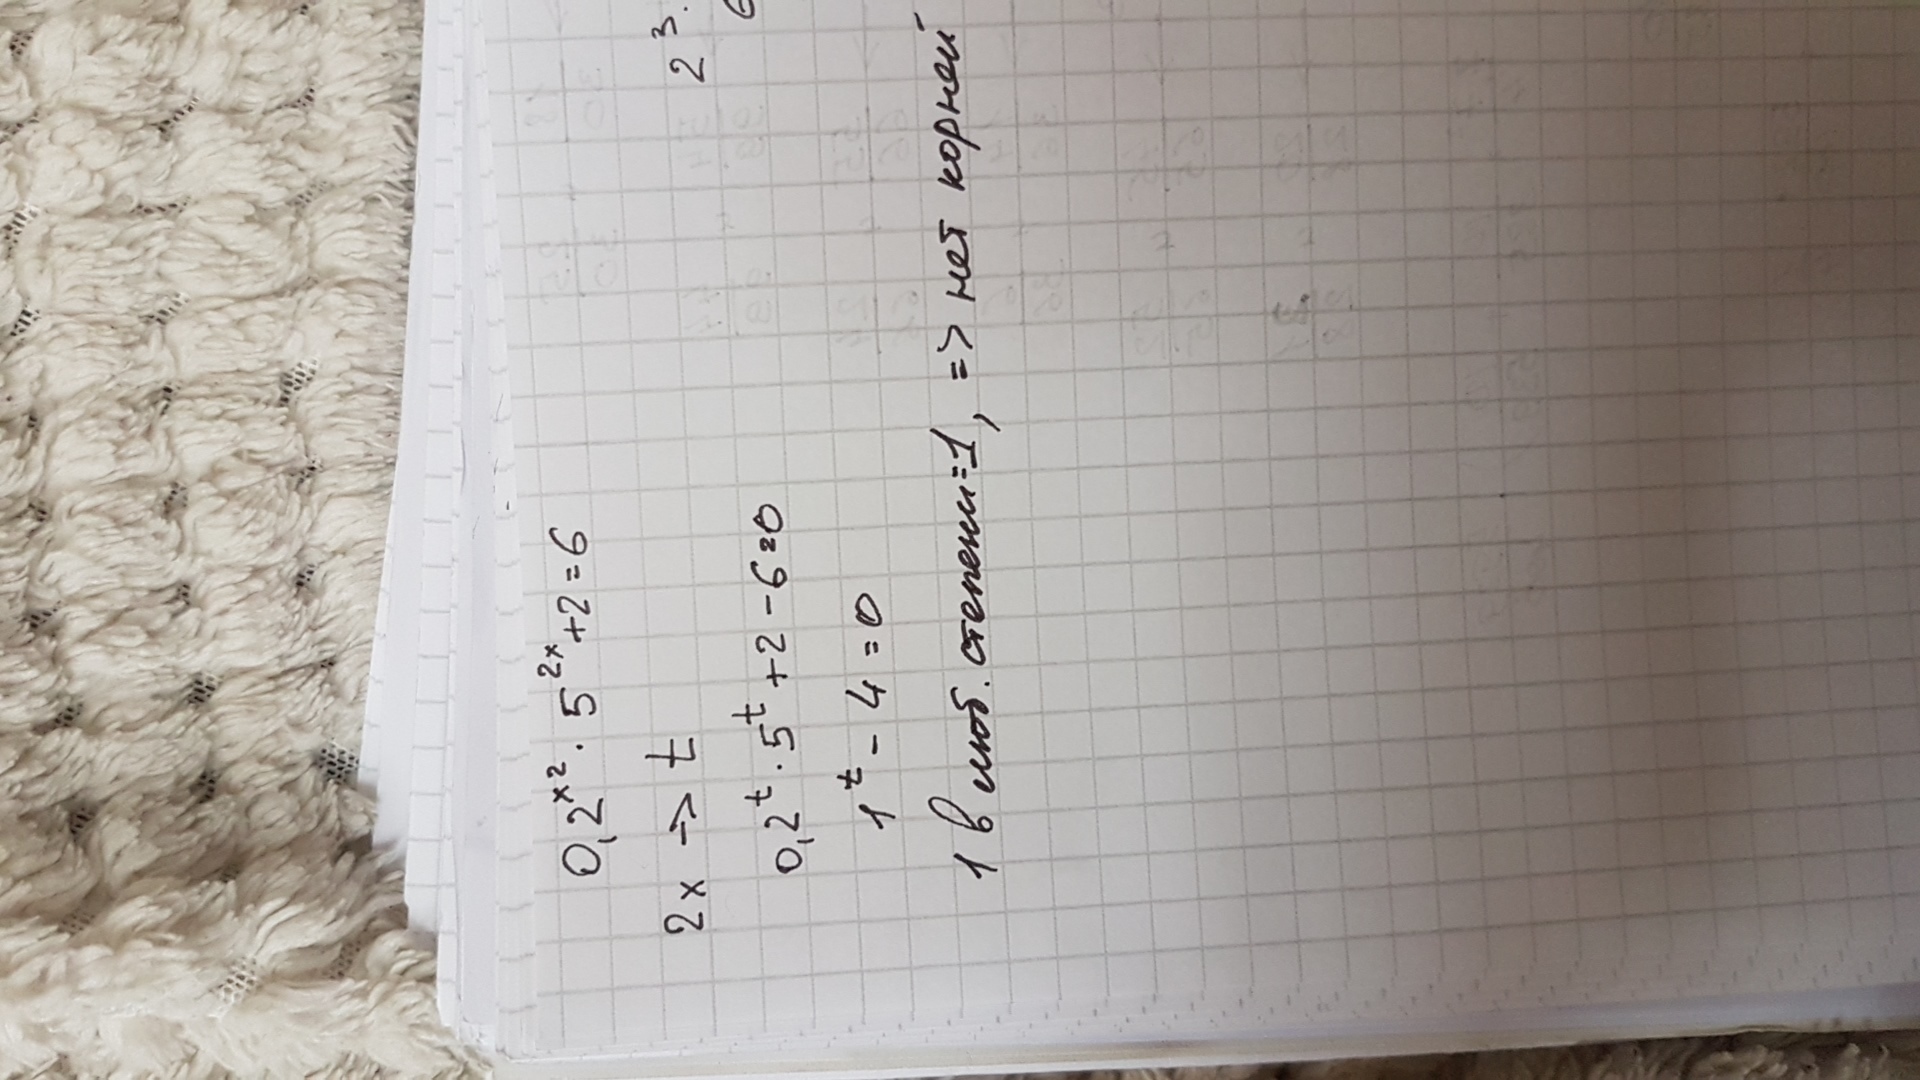 0,2^{x2} · 5^{2x} + 2 = 6
2x -> t
0,2^t · 5^t + 2 - 6 = 0
1^t - 4 = 0
1 в люб. степени = 1, => нет корней
2^3 ·